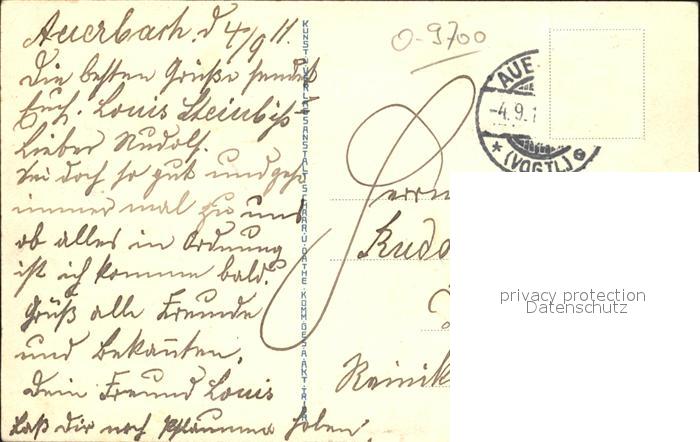 Auerbach. d 4/9 11.
Die besten Grüße sendet
Euch. Louis Steinbiß
Lieber Rudolf.
Sei doch so gut und geh
immer mal zu uns
ob alles in Ordnung
ist ich komme bald.
Grüß alle Freunde
und Bekannten,
Dein Freund Louis
Laß dir noch Pflaumen holen,
KUNST-VERLAGSANSTALT SCHAAR U. DATHE KOMM.GES.A.AKT. TRIER
0-9700
AUE
-4.9.1
* (VOGTL.) e
Herrn
Rudo
Reinik
privacy protection
Datenschutz